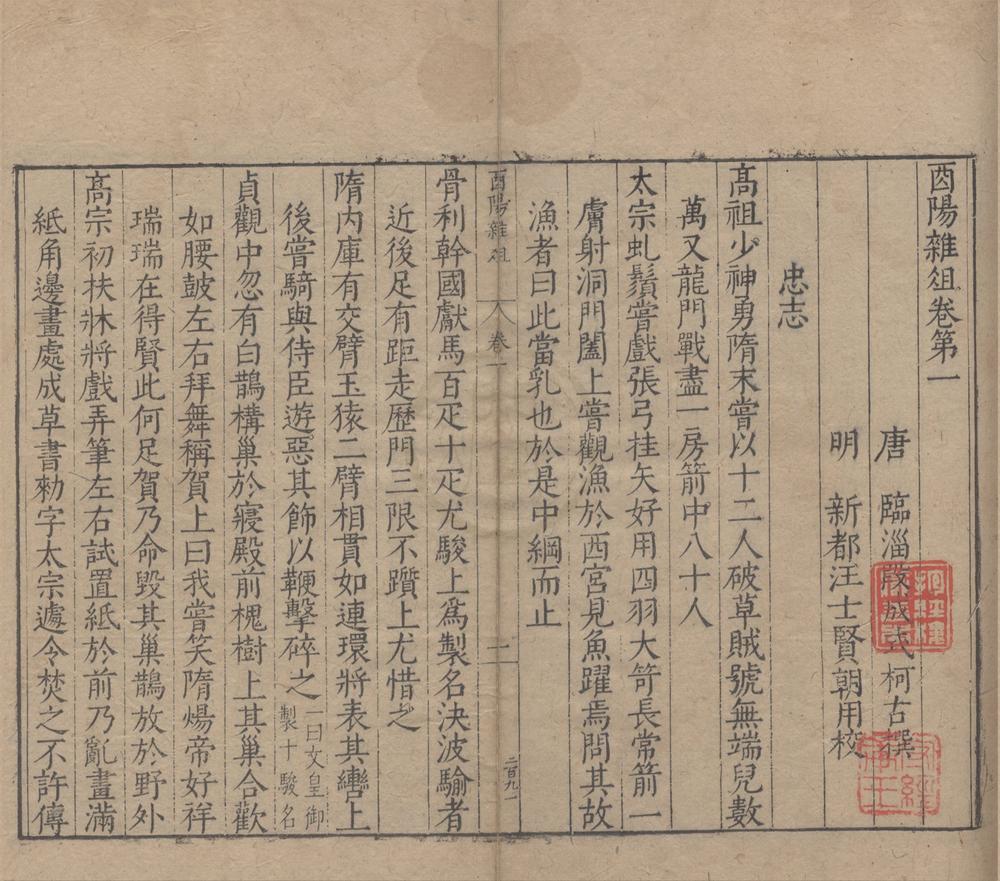 酉陽雜俎卷第一
唐 臨淄段成式柯古撰
明 新都汪士賢朝用校
忠志
高祖少神勇隋末嘗以十二人破草賊號無端兒數
萬又龍門戰盡一房箭中八十人
太宗虬鬚嘗戲張弓挂矢好用四羽大笴長常箭一
膚射洞門闔上嘗觀漁於西宮見魚躍焉問其故
漁者曰此當乳也於是中綱而止
酉陽雜俎 卷一 一
骨利幹國獻馬百疋十疋尤駿上爲製名決波騟者
近後足有距走歷門三限不躓上尤惜之
隋內庫有交臂玉猿二臂相貫如連環將表其轡上
後嘗騎與侍臣遊惡其飾以鞭擊碎之一曰文皇御製十駿名
貞觀中忽有白鵲構巢於寢殿前槐樹上其巢合歡
如腰皷左右拜舞稱賀上曰我嘗笑隋煬帝好祥
瑞瑞在得賢此何足賀乃命毀其巢鵲放於野外
高宗初扶牀將戲弄筆左右試置紙於前乃亂畫滿
紙角邊畫處成草書勑字太宗遽令焚之不許傳